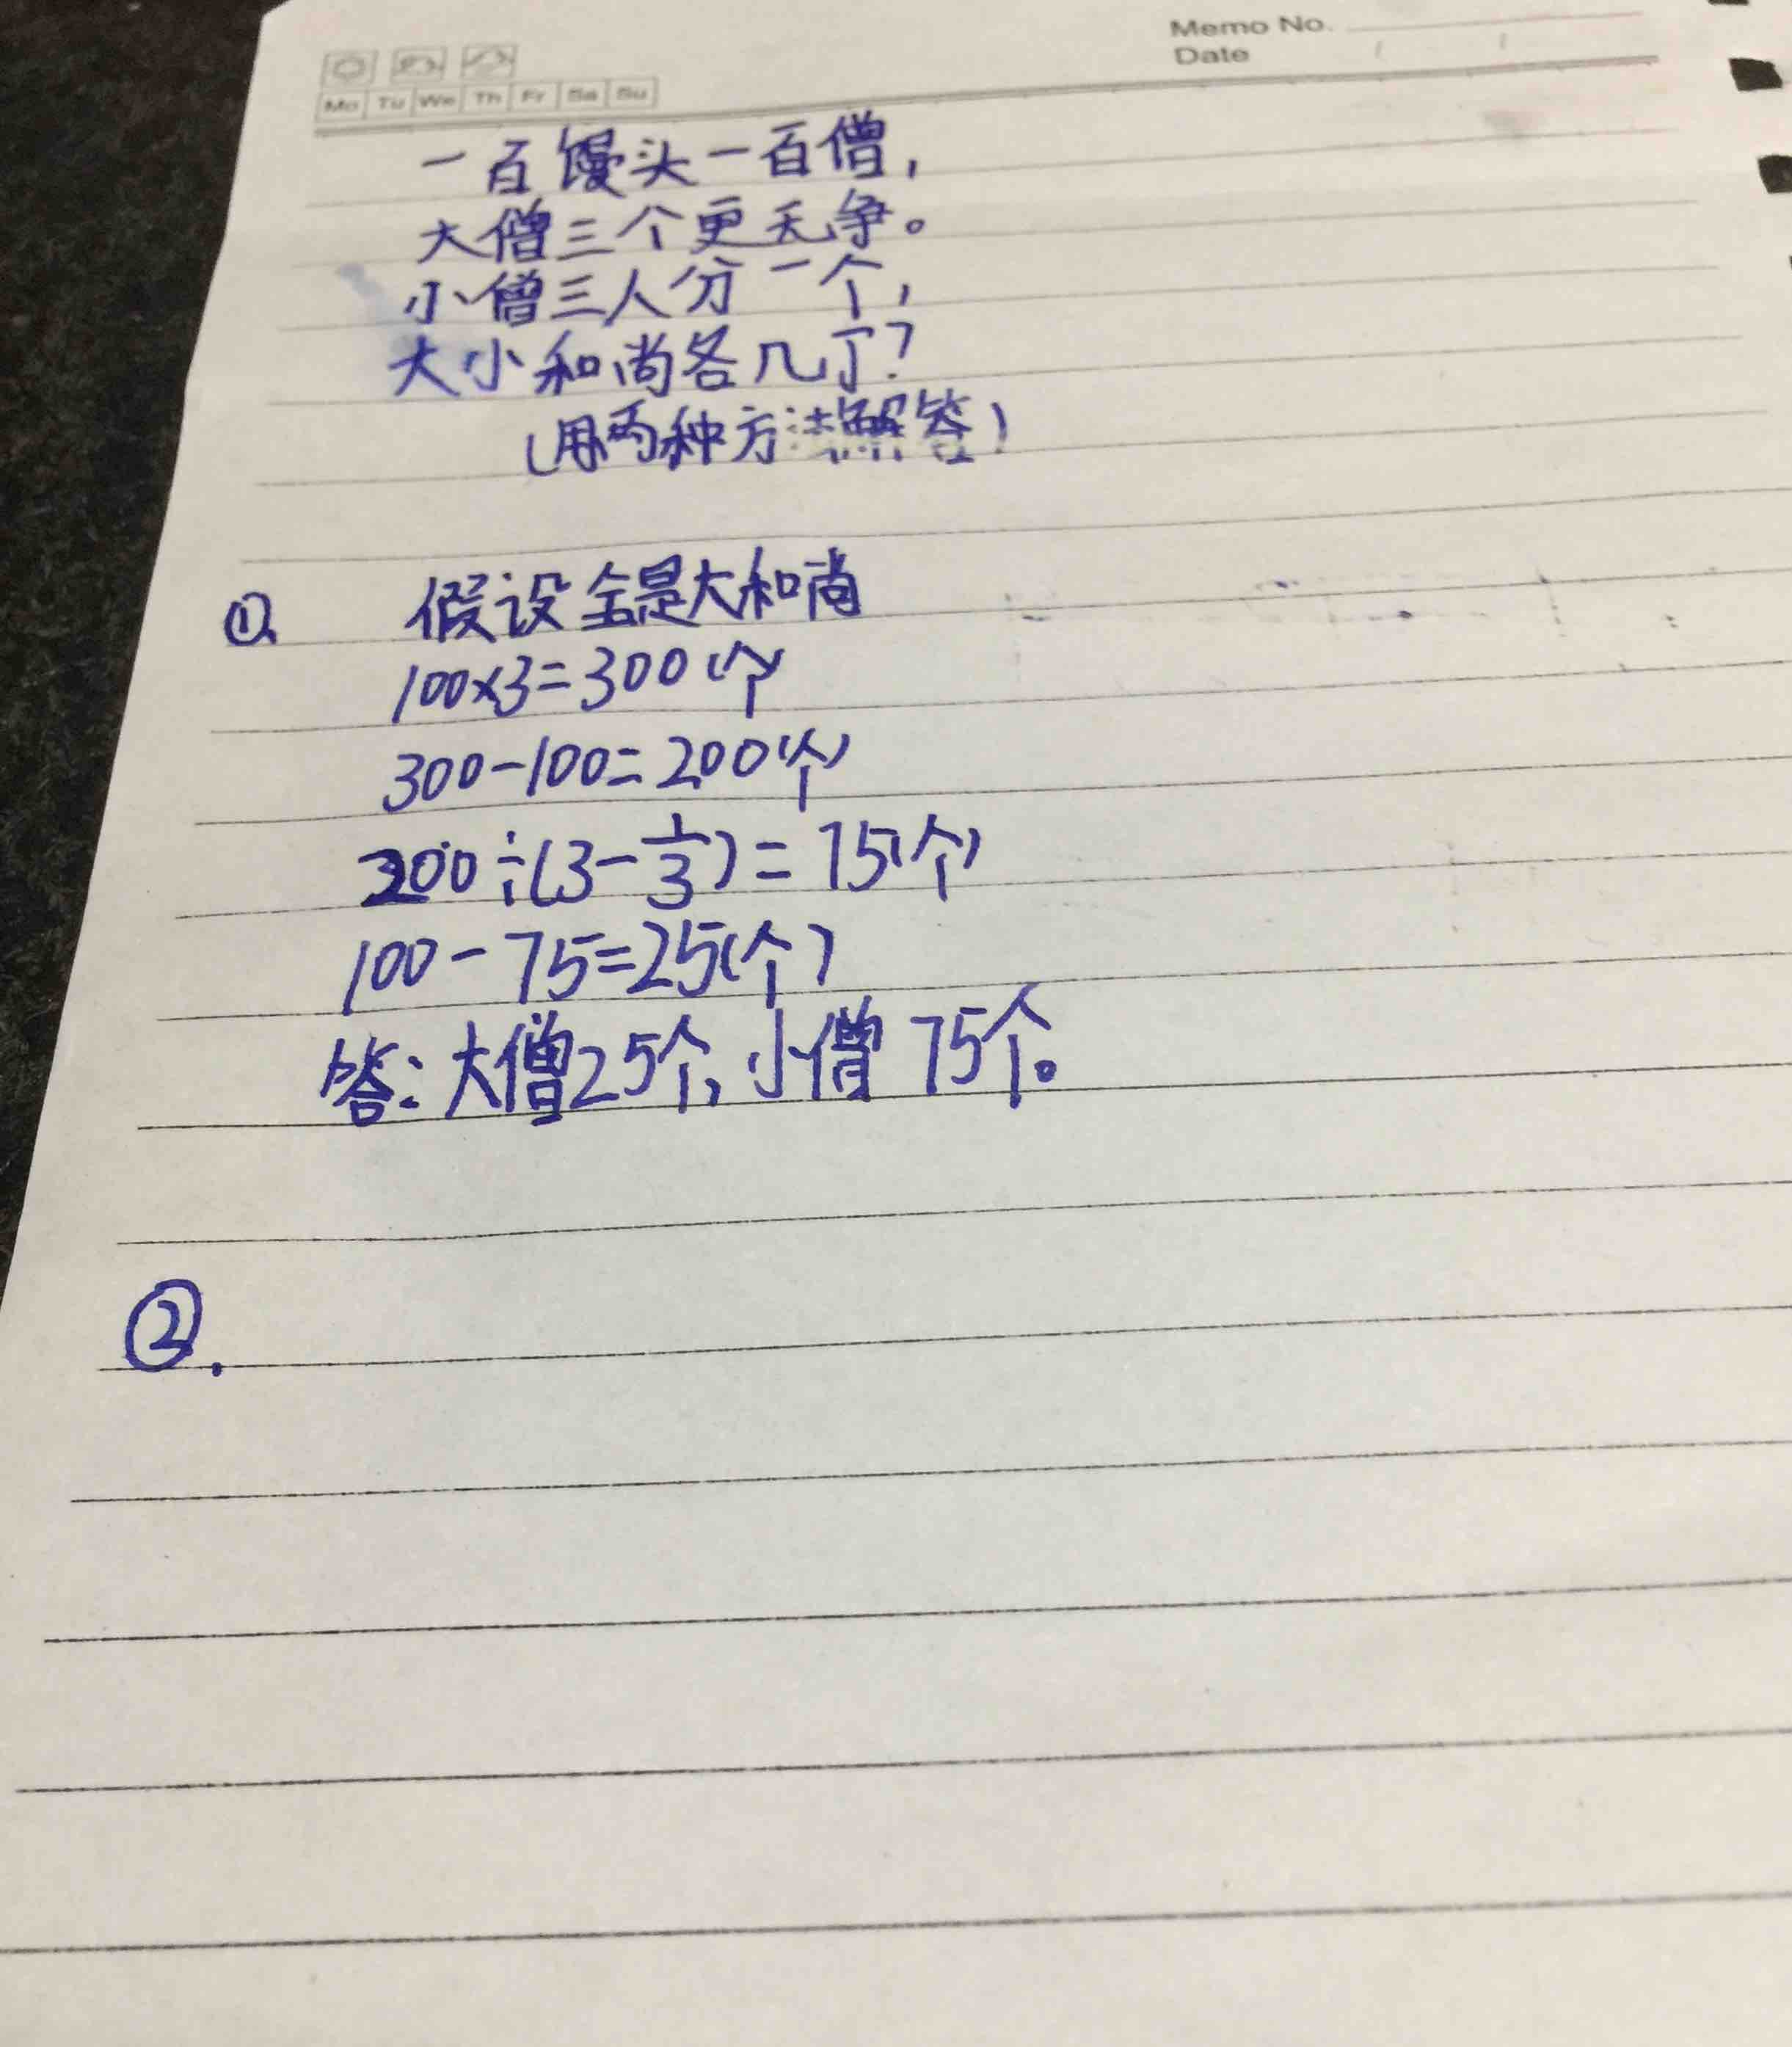 Memo No.
Date / /
Mo Tu We Th Fr Sa Su
一百馒头一百僧,
大僧三个更无争。
小僧三人分一个,
大小和尚各几丁?
(用两种方法解答)
①. 假设全是大和尚
100×3=300(个)
300-100=200(个)
200÷(3-1/3)=75(个)
100-75=25(个)
答:大僧25个,小僧75个。
②.